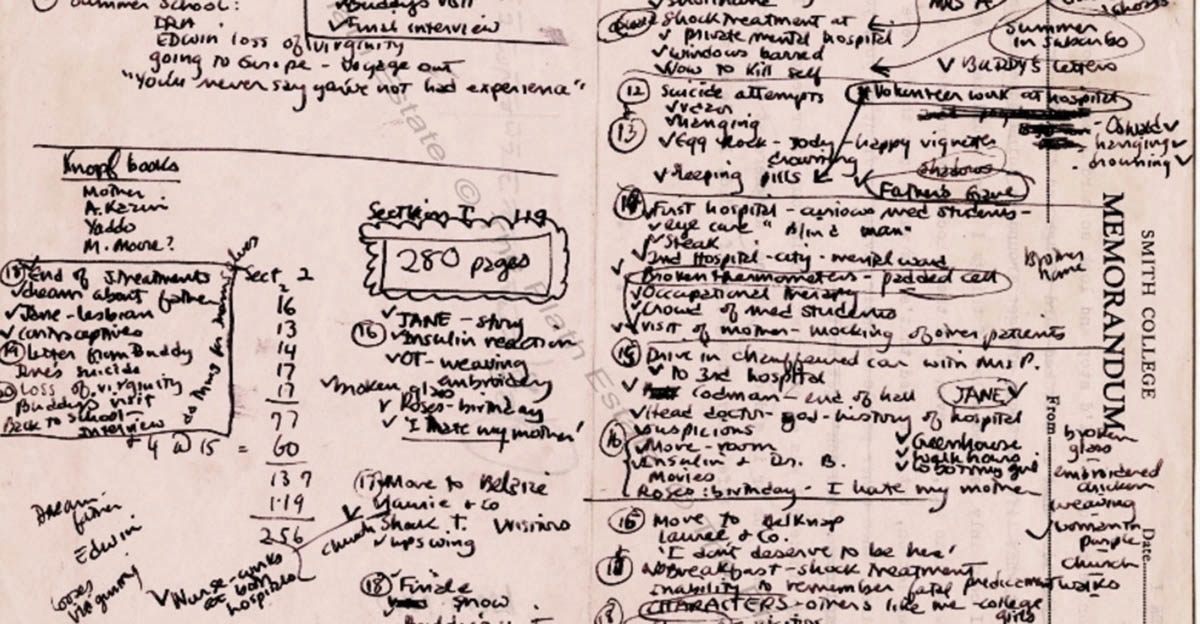 Summer School:
IRA
EDWIN loss of virginity
going to Europe - Voyage out
"You'll never say you've not had experience"
Buddy's visit
✓Final interview
Knopf books
Mother
A. Kazin
Yaddo
M. Moore?
End of S. treatments
✓dream about father
✓Jane - lesbian
✓contraceptives
(19) Letter from Buddy
Jane's suicide
Loss of virginity
Buddy's visit
Back to School -
interview
Sect. 2
16
13
14
17
17
77
+ 4 @ 15 = 60
137
119
256
Dream
father
Edwin
loses
virginity
✓Nurse - works
at both
hospitals
Section I 119
280 pages
✓JANE - story
(16) ✓Insulin reaction
✓OT - weaving
embroidery
✓broken glass
✓Roses - birthday
✓'I hate my mother'
(17) Move to Belsize
✓Laurie & Co
✓Shock T.
church
visitors
✓upswing
(18) ✓Finale
snow
Shock treatment at
✓private mental hospital
✓windows barred
✓How to kill self
summer
in suburbs
✓BUDDY'S letters
(12) Suicide attempts
✓razor
✓hanging
(13) ✓Egg Rock - Jody - happy vignettes
drowning
✓sleeping pills
✓Volunteer work at hospital
hanging✓
drowning✓
shadows
Father's Grave
(14) ✓First hospital - curious med students -
✓eye care "blind man"
✓steak
✓2nd Hospital - city - mental ward
Broken thermometers - padded cell
✓Occupational therapy
✓Crowd of med students
✓Visit of mother - mocking of other patients
Brother
name
(15) Drive in chauffeured car with Mrs P.
✓to 3rd hospital
✓Codman - end of hall
JANE✓
✓Head doctor - god - history of hospital
✓suspicions
(16) ✓Move - room
✓Insulin & Dr. B.
Movies
Roses: birthday - I hate my mother
✓Greenhouse
✓walk hours
✓Lobotomy girl
(16) Move to Belknap
Laurel & Co.
'I don't deserve to be here'
✓Breakfast - shock treatment
inability to remember fatal predicament
(18) CHARACTERS - others like me - college
girls
broken
glass
embroidered
chicken
weaving
✓woman in
purple
church
walks
SMITH COLLEGE
MEMORANDUM
From
Date
Estate © Plath